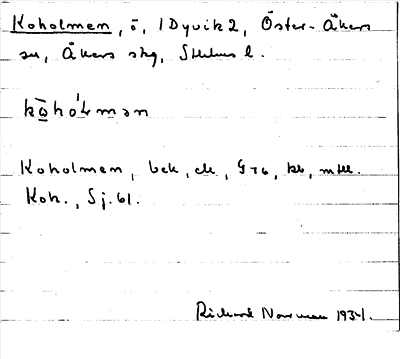 Koholmen, ö, 1 Dyvik 2, Öster-Åkers
sn, Åkers skg, Sthlms l.
kōhoĺmən
Koholmen, bek, ek, G 76, kb, mtbl.
Koh., Sj. 61.
Rickard Norrman 1934.